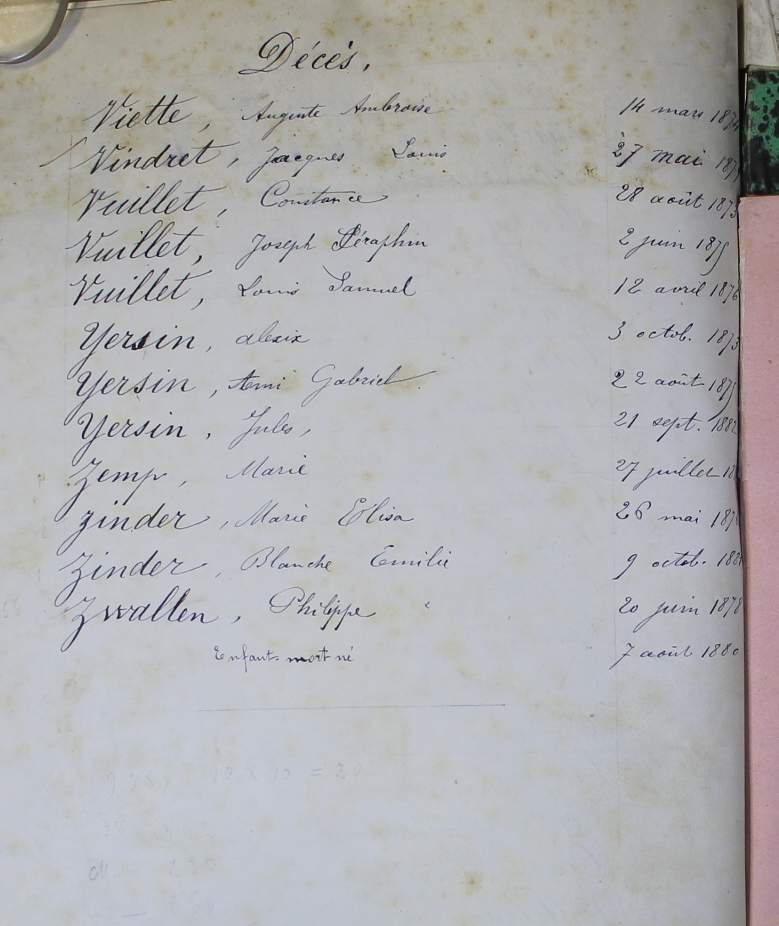 Décés.
Viette, Auguste Ambroise 14 mars 1874
Vindret, Jacques Louis 27 mai
Vuillet, Constance 28 août 1873
Vuillet, Joseph Séraphin 2 juin 1875
Vuillet, Louis Samuel 12 avril 1876
Yersin, alexix 3 octob. 1873
Yersin, Ami Gabriel 22 août 1875
Yersin, Jules, 21 sept. 1882
Zemp, Marie 27 juillet
Zinder, Marie Elisa 26 mai
Zinder, Blanche Emilie 9 octob.
Zwallen, Philippe 20 juin 1878
Enfant mort né 7 août 1880